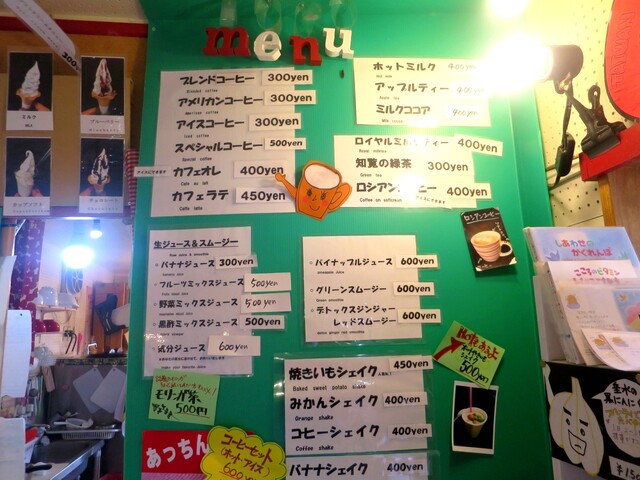 menu
ブレンドコーヒー 300yen
Blended coffee
アメリカンコーヒー 300yen
American coffee
アイスコーヒー 300yen
Iced coffee
スペシャルコーヒー 500yen
Special coffee
アイスにできます
カフェオレ 400yen
Cafe au lait
カフェラテ 450yen
Caffe latte
ホットミルク 400yen
Hot milk
アップルティー 400yen
Apple tea
ミルクココア 400yen
Milk cocoa
ロイヤルミルクティー 400yen
Royal milktea
知覧の緑茶 300yen
Green tea
ロシアンコーヒー 400yen
ロシアンコーヒー
生ジュース＆スムージー
Raw juice & smoothie
バナナジュース 300yen
banana juice
フルーツミックスジュース 500yen
野菜ミックスジュース 500yen
黒酢ミックスジュース 500yen
気分ジュース 600yen
パイナップルジュース 600yen
pineapple juice
グリーンスムージー 600yen
Green smoothie
デトックスジンジャー
レッドスムージー 600yen
detox ginger red smoothie
焼きいもシェイク 450yen
Baked sweet potato shake
みかんシェイク 400yen
Orange shake
コヒーシェイク 400yen
Coffee shake
バナナシェイク 400yen
モリンガ茶
500円
あっちん
コーヒーセット
(ホット・アイス)
600
500円
ミルク
ブルーベリー
しあわせの
かくれんぼ
こころのビタミン
黒にんにく